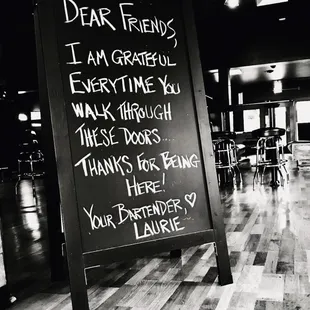 DEAR FRIENDS,
I AM GRATEFUL
EVERYTIME YOU
WALK THROUGH
THESE DOORS....
THANKS FOR BEING
HERE!
YOUR BARTENDER,
LAURIE